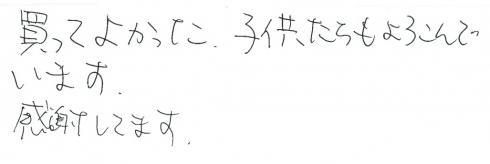 買ってよかった。子供たちもよろこんで
います。
感謝してます。